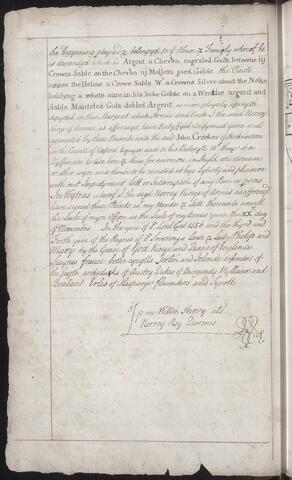 the beginning playned & belonged to yᵉ House & Famyly whereof he
is descended which is Argent a Chevron engrailed Gulz betweene iij
Crowes Sable on the Chevron iij Malletts persd Golde the Creste
uppon the Helme a Crowe Sable Wᵗ a Crowne Silver about the Neke
holdyng a whete eare in his beke Golde on a Wrethe argent and
Sable Manteled Gulz dobled Argent as more playnly apereyth
depicted in this Margent which Armes and Creste I the said Norrey
King of Armes as aforesaid have Ratyffyed Confirmed geven and
graunted by these Presents unto the said John Crofton of
in the Countie of esquyer and to his Posteryte Wᵗ theyr dew
Dyfference to use bere & shew for evermore in Shyld cote armure
or otherwyse and therein to be revested at his Lyberty and pleasure
with out Impedyment lett or interruption of any person or persons
In Wytness whereof I the sayd Norrey Kinge of Armes as aforesayd
have signed these Presents wᵗ my Hande & sett thereunto aswell
the Seale of myn Offyce as the Seale of my Armes yeven the XX day
of Novembre In the yere of oʳ Lord God 1556 and the thyrd and
forth yere of the Reignes of oʳ Soverenge Lorde & Lady Phelipe and
Mary by the Grace of God Kinge and Quene of Englonde
Spaynes france bothe Cycylls and Irlonde defenders of
the fayth archedukes of Austry Dukes of Burgundy Myllayne and
Brabant Erles of Haspurge flaunders and Tyroll
p me Willm Hervy als
Norrey Roy Darmes